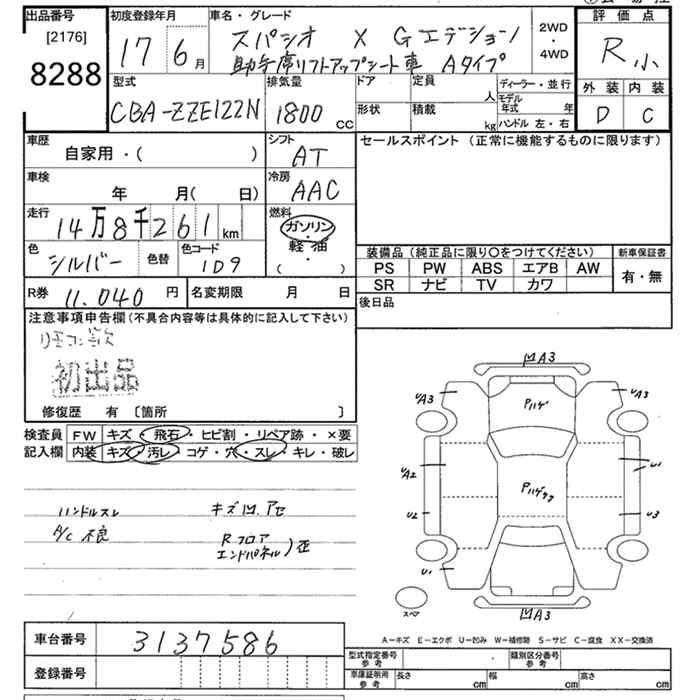 出品番号
[2176]
8288
初度登録年月
17年 6月
車名・グレード
スパシオ X Gエデション
助手席リフトアップシート車 Aタイプ
2WD
・
4WD
評価点
R 小
外装 内装
D C
型式
CBA-ZZE122N
排気量
1800 CC
ドア
定員
人
形状
積載
kg
ディーラー・並行
モデル年式 年
ハンドル 左・右
車歴
自家用・( )
シフト
AT
車検
年 月( 日)
冷房
AAC
走行
14万8千261km
燃料
ガソリン
・
軽油
( )
色
シルバー
色替
色コード
1D9
R券 11.040 円
名変期限 月 日
セールスポイント (正常に機能するものに限ります)
装備品(純正品に限り〇をつけてください)
新車保証書
PS PW ABS エアB AW
SR ナビ TV カワ
有・無
後日品
注意事項申告欄(不具合内容等は具体的に記入して下さい)
リモコン欠
初出品
修復歴 有 〔箇所 〕
検査員 FW キズ・飛石・ヒビ割・リペア跡・×要
記入欄 内装 キズ・汚レ・コゲ・穴・スレ・キレ・破レ
ハンドルスレ
A/C 不良
キズ凹.アセ
Rフロア
エンドパネル)歪
凹A3
UA3
Pハゲ
UA3
UA2
U1
Pハゲ
U2
U3
U1
スペア
凹A3
A－キズ E－エクボ U－凹み W－補修跡 S－サビ C－腐食 XX－交換済
車台番号 3137586
登録番号
型式指定番号
参考
類別区分番号
参考
車庫証明用
参考
長さ cm
幅 cm
高さ cm